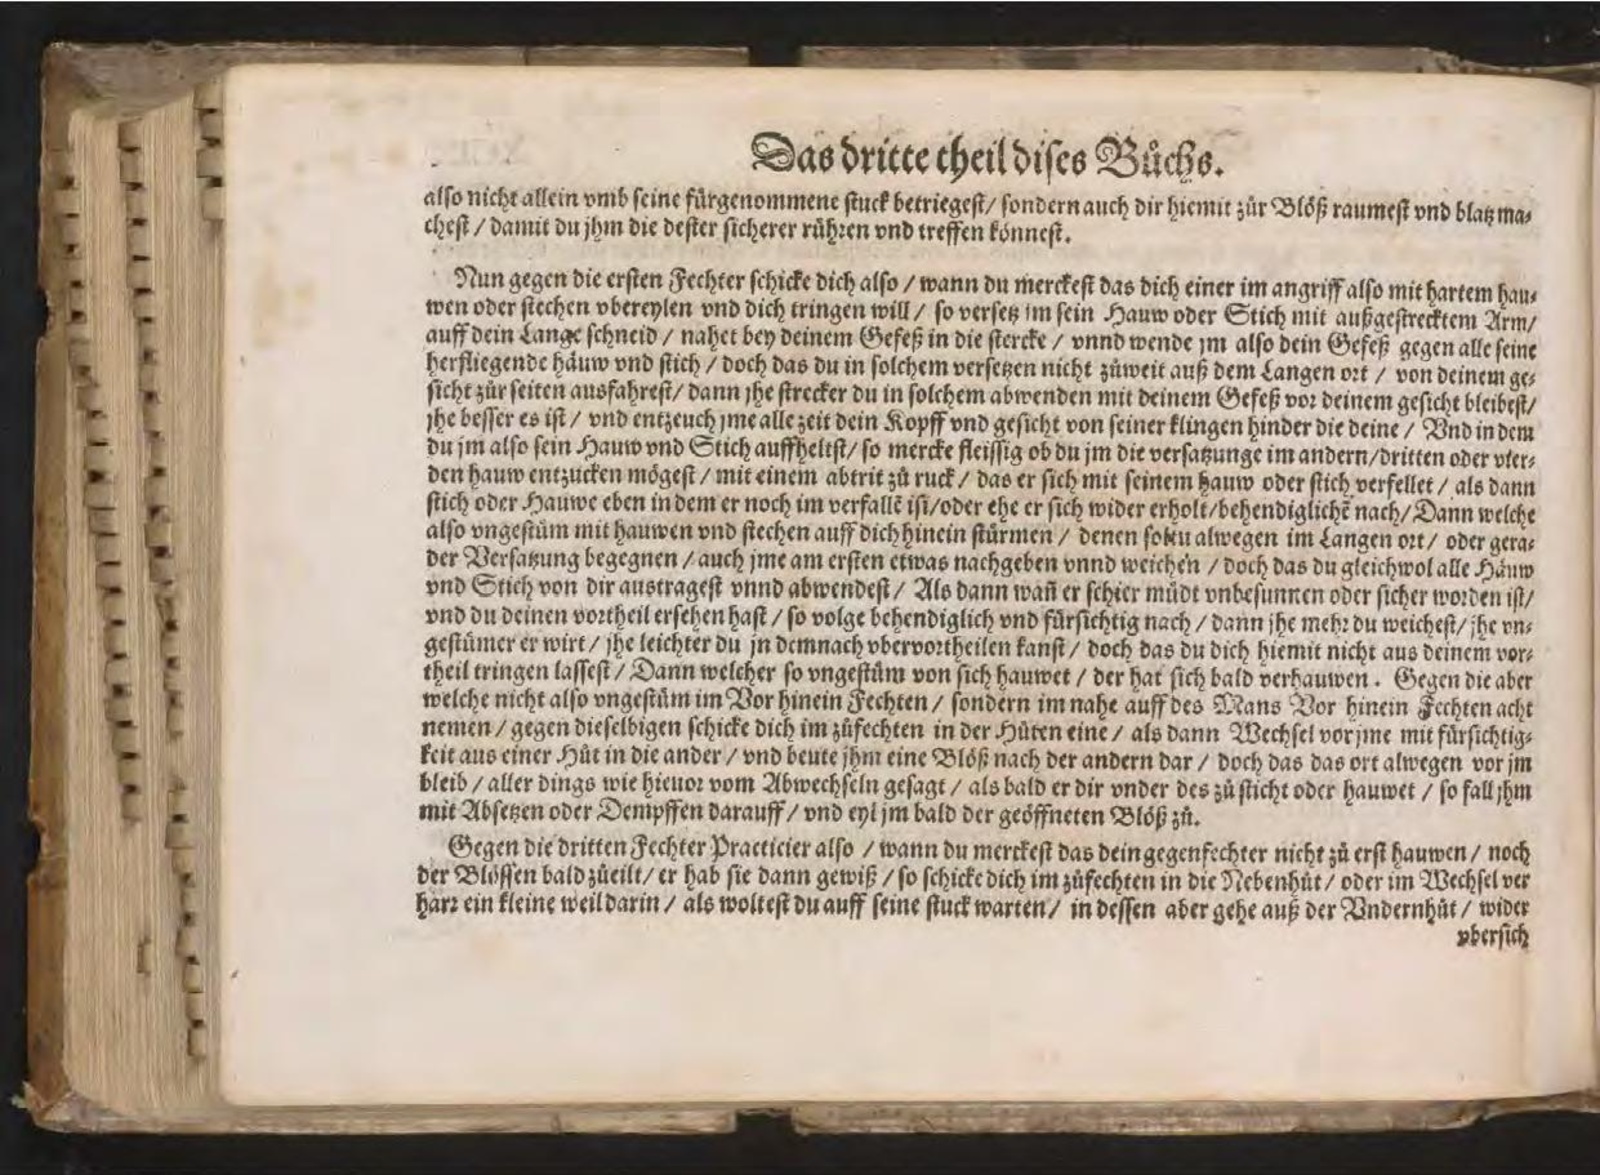 Das dritte theil dises Bůchs.
also nicht allein vmb seine fürgenommene stuck betriegest / sondern auch dir hiemit zůr Blöß raumest vnd blatz ma⸗
chest / damit du jhm die dester sicherer rühren vnd treffen könnest.
Nun gegen die ersten Fechter schicke dich also / wann du merckest das dich einer im angriff also mit hartem hau⸗
wen oder stechen vbereylen vnd dich tringen will / so versetz jm sein Hauw oder Stich mit außgestrecktem Arm /
auff dein Lange schneid / nahet bey deinem Gefeß in die stercke / vnnd wende jm also dein Gefeß gegen alle seine
herfliegende häuw vnd stich / doch das du in solchem versetzen nicht zůweit auß dem Langen ort / von deinem ge⸗
sicht zůr seiten ausfahrest / dann jhe strecker du in solchem abwenden mit deinem Gefeß vor deinem gesicht bleibest /
jhe besser es ist / vnd entzeuch jme alle zeit dein Kopff vnd gesicht von seiner klingen hinder die deine / Vnd in dem
du jm also sein Hauw vnd Stich auffheltst / so mercke fleissig ob du jm die versatzunge im andern / dritten oder vier⸗
den hauw entzucken mögest / mit einem abtrit zů ruck / das er sich mit seinem hauw oder stich verfellet / als dann
stich oder Hauwe eben in dem er noch im verfallẽ ist / oder ehe er sich wider erholt / behendiglichẽ nach / Dann welche
also vngestům mit hauwen vnd stechen auff dich hinein stürmen / denen soltu alwegen im Langen ort / oder gera⸗
der Versatzung begegnen / auch jme am ersten etwas nachgeben vnnd weichen / doch das du gleichwol alle Häuw
vnd Stich von dir austragest vnnd abwendest / Als dann wañ er schier müdt vnbesunnen oder sicher worden ist /
vnd du deinen vortheil ersehen hast / so volge behendiglich vnd fürsichtig nach / dann jhe mehr du weichest / jhe vn⸗
gestümer er wirt / jhe leichter du jn demnach vbervortheilen kanst / doch das du dich hiemit nicht aus deinem vor⸗
theil tringen lassest / Dann welcher so vngestům von sich hauwet / der hat sich bald verhauwen. Gegen die aber
welche nicht also vngestům im Vor hinein Fechten / sondern im nahe auff des Mans Vor hinein Fechten acht
nemen / gegen dieselbigen schicke dich im zůfechten in der Hůten eine / als dann Wechsel vor jme mit fürsichtig⸗
keit aus einer Hůt in die ander / vnd beute jhm eine Blöß nach der andern dar / doch das das ort alwegen vor jm
bleib / aller dings wie hieuor vom Abwechseln gesagt / als bald er dir vnder des zů sticht oder hauwet / so fall jhm
mit Absetzen oder Dempffen darauff / vnd eyl jm bald der geöffneten Blöß zů.
Gegen die dritten Fechter Practicier also / wann du merckest das dein gegenfechter nicht zů erst hauwen / noch
der Blössen bald zůeilt / er hab sie dann gewiß / so schicke dich im zůfechten in die Nebenhůt / oder im Wechsel ver
harr ein kleine weil darin / als woltest du auff seine stuck warten / in dessen aber gehe auß der Vndernhůt / wider
vbersich